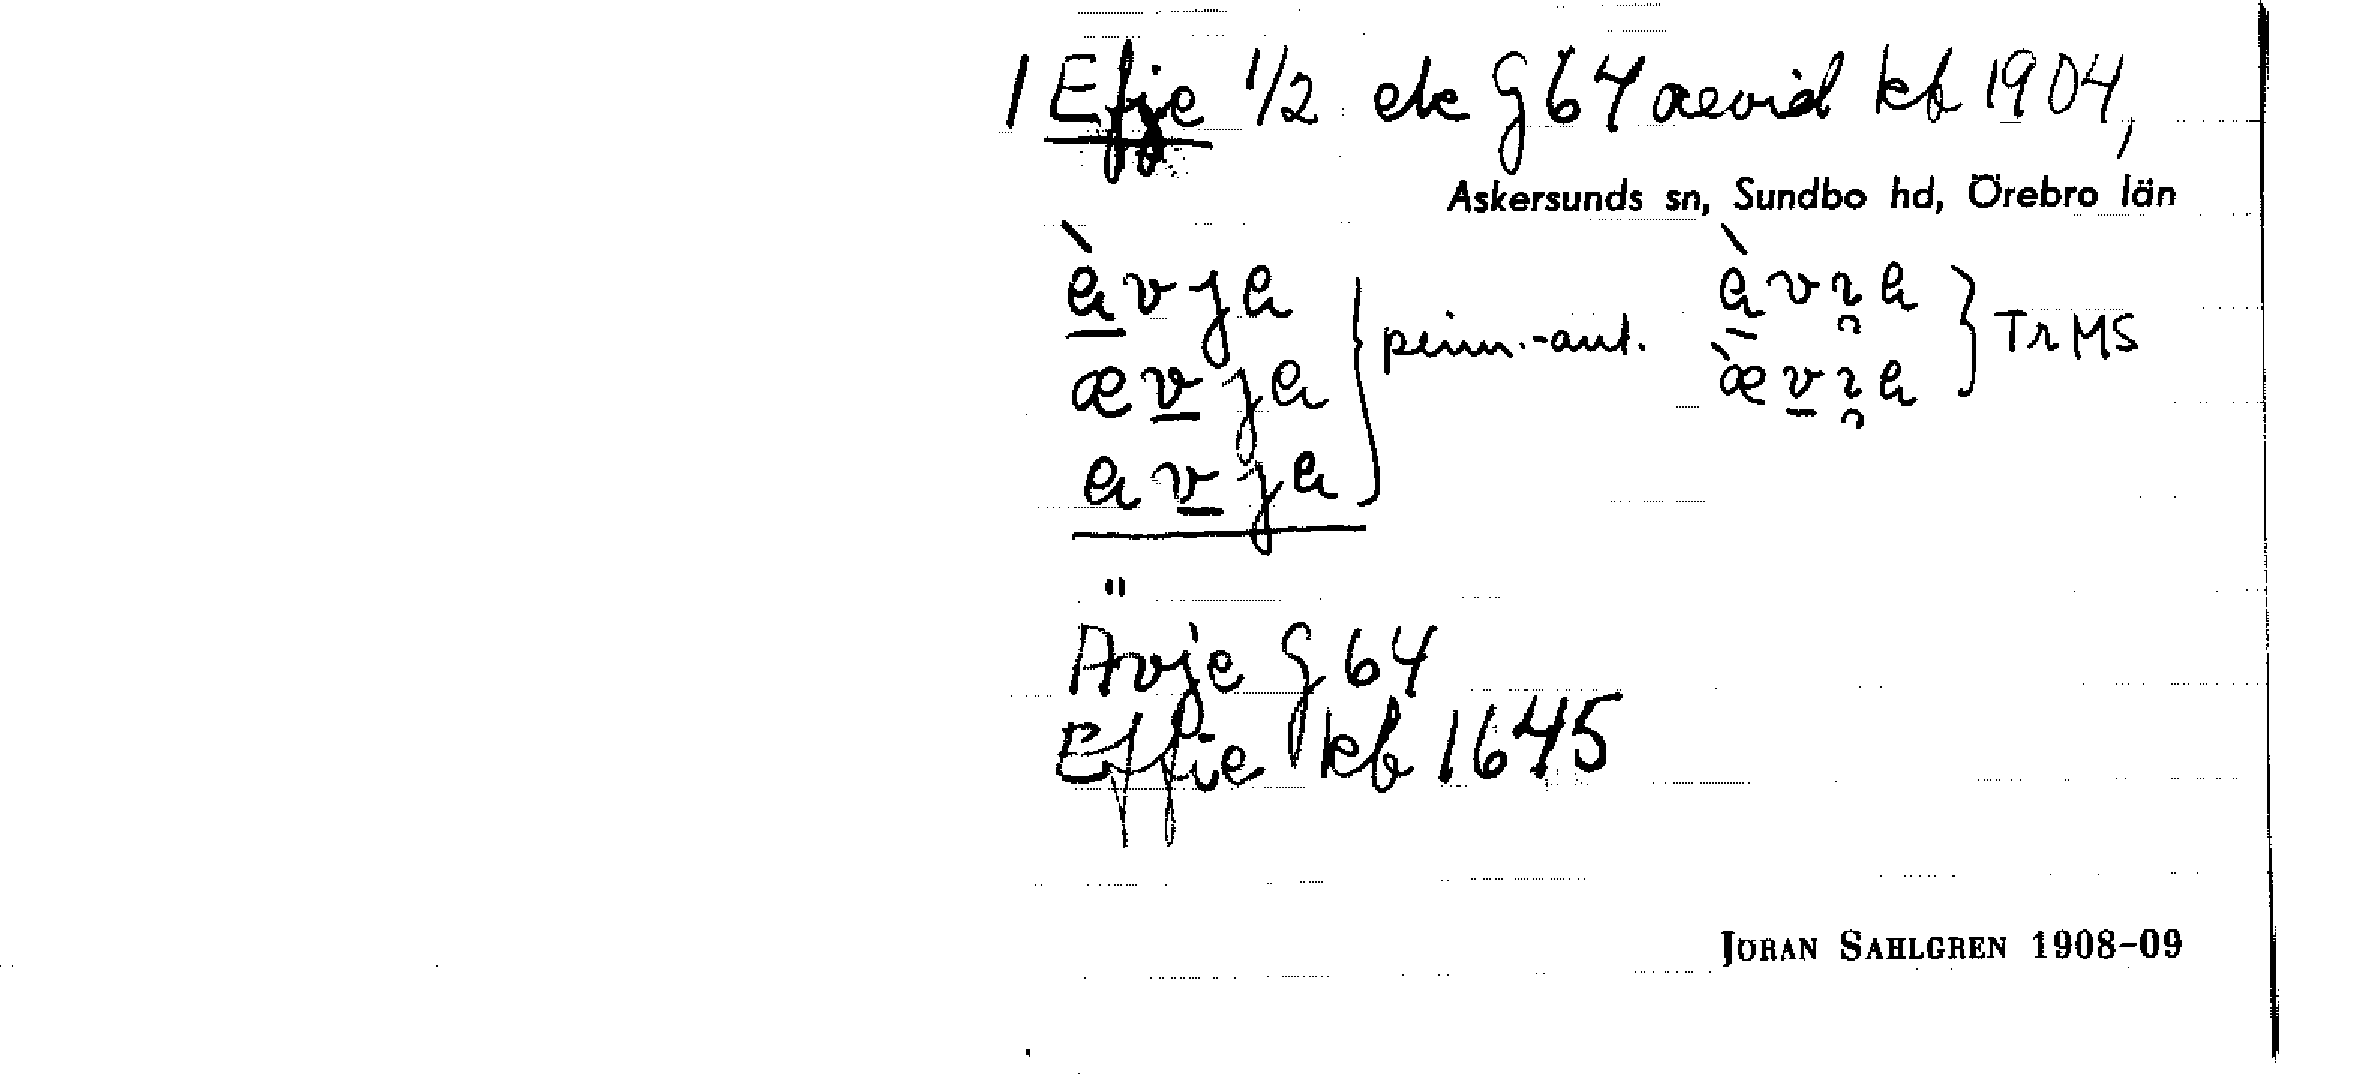 1 Efje 1/2 ek G 64 aevid kb 1904,
Askersunds sn, Sundbo hd, Örebro län
èvje
ævje
evje
prim.-ant.
èvıe
ævıe
TrMS
"
Avje G 64
Effie kb 1645
JÖRAN SAHLGREN 1908-09